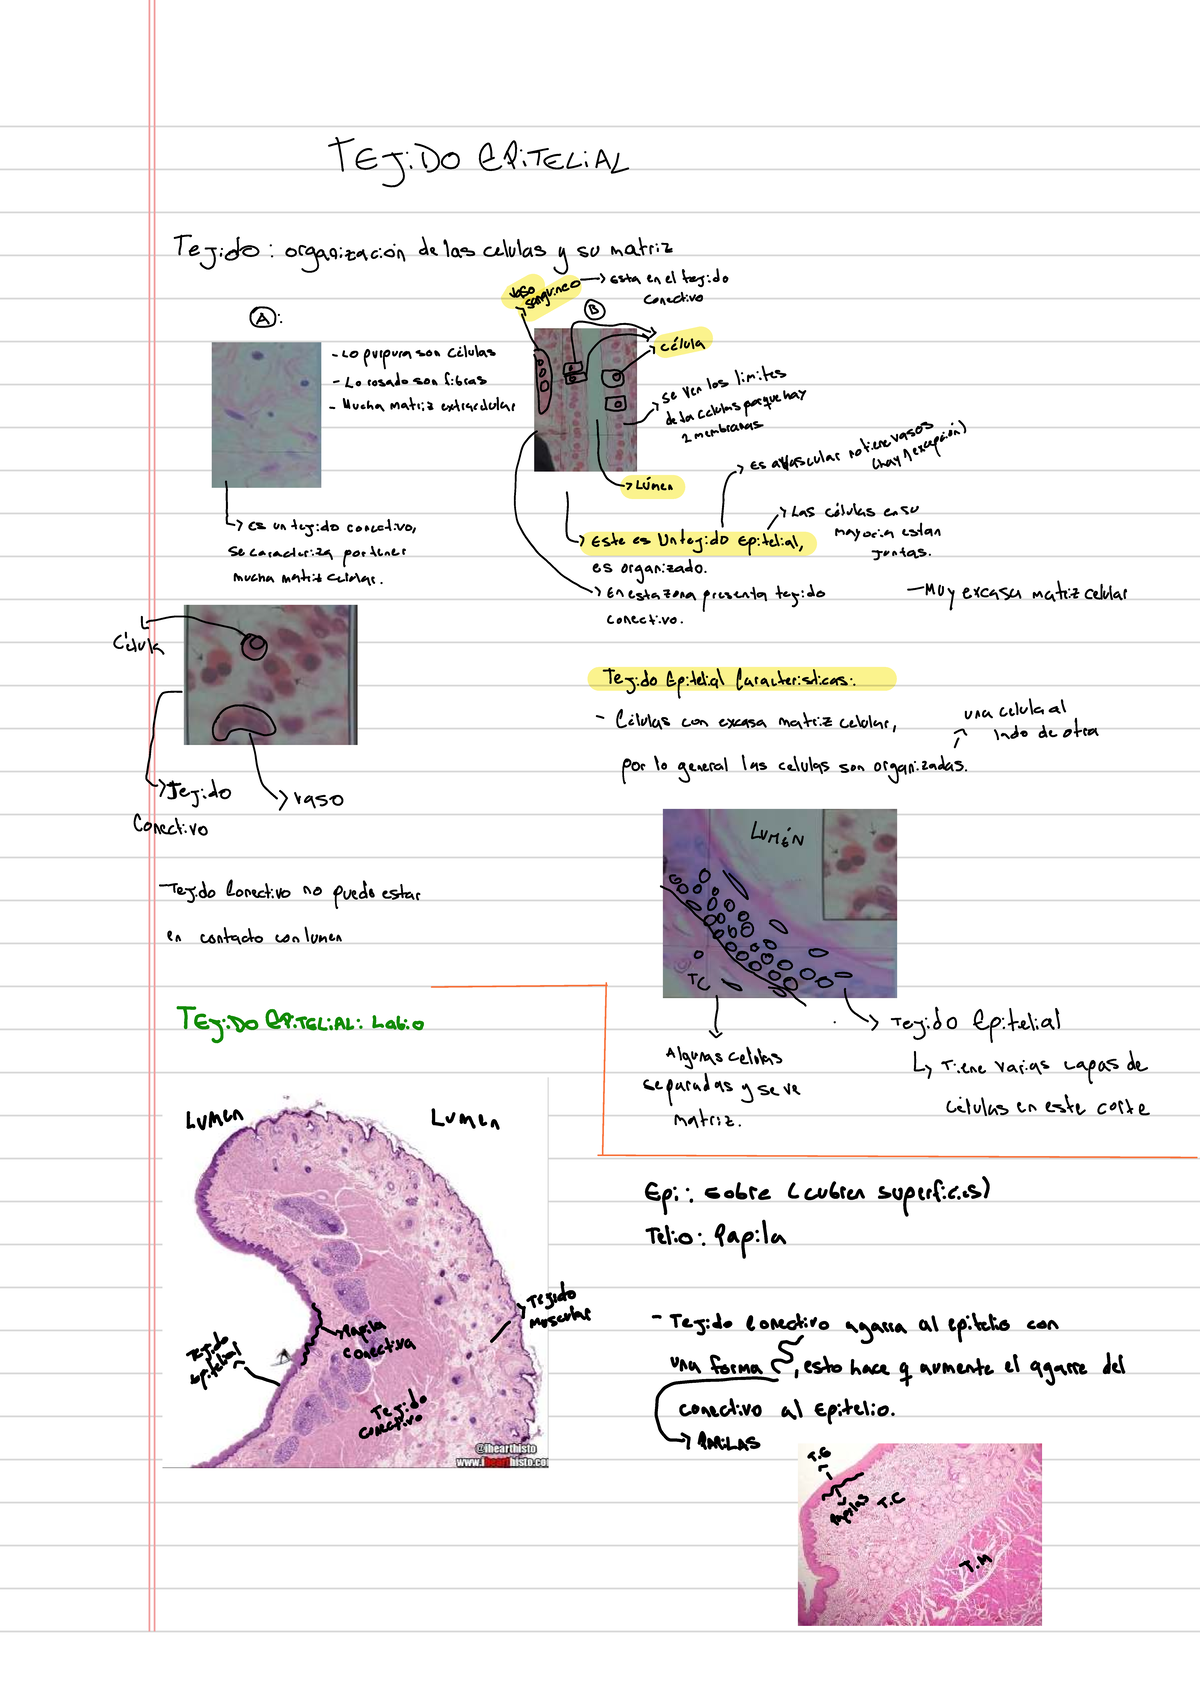 TEJIDO EPITELIAL
Tejido: organización de las celulas y su matriz
vaso
sanguineo
Esta en el tejido
conectivo
A:
B
- Lo purpura son células
- Lo rosado son fibras
- Mucha matriz extracelular
célula
se ven los limites
de la celulas porque hay
2 membranas
Lúmen
Es avascular no tiene vasos
(hay 1 excepción)
Las células en su
mayoria estan
juntas.
Es un tejido conectivo,
se caracteriza por tener
mucha matriz celular.
Este es Un tejido Epitelial,
es organizado.
En esta zona presenta tejido
conectivo.
- Muy excasa matriz celular
Célula
Tejido
Conectivo
vaso
Tejido Epitelial Caracteristicas:
- Células con excasa matriz celular,
por lo general las celulas son organizadas.
una celula al
lado de otra
Tejido Conectivo no puede estar
en contacto con lumen
LUMÉN
TC
Algunas celulas
separadas y se ve
matriz.
Tejido Epitelial
Tiene varias capas de
células en este corte
TEJIDO EPITELIAL: Labio
LUMEN
LUMEN
Tejido
epitelial
Papila
conectiva
Tejido
conectivo
Tejido
muscular
@ihearthisto
www.ihearthisto.co
Epi: sobre (cubren superficies)
Telio: Papila
- Tejido conectivo agarra al epitelio con
una forma , esto hace q aumente el agarre del
conectivo al Epitelio.
PAPILAS
T.E
Papilas
T.C
T.M